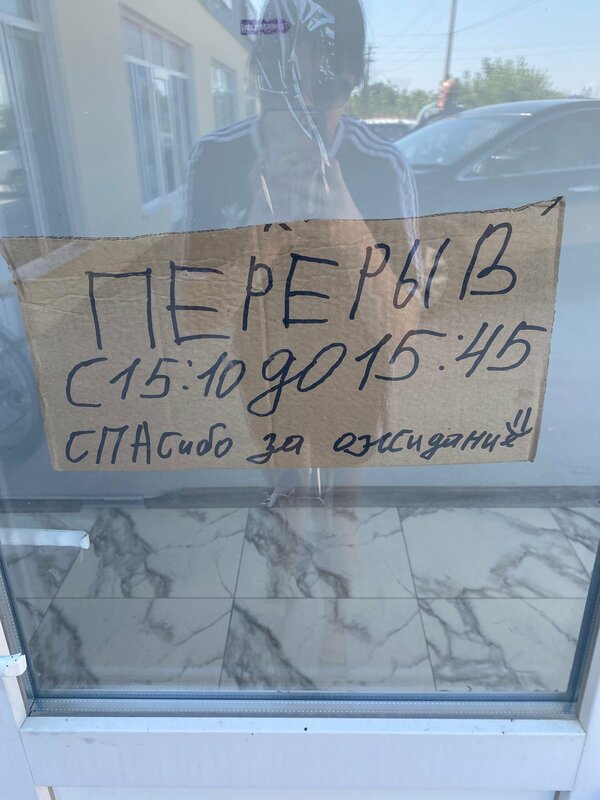 ПЕРЕРЫВ
С 15:10 до 15:45
СПАСибо за ожидание!!